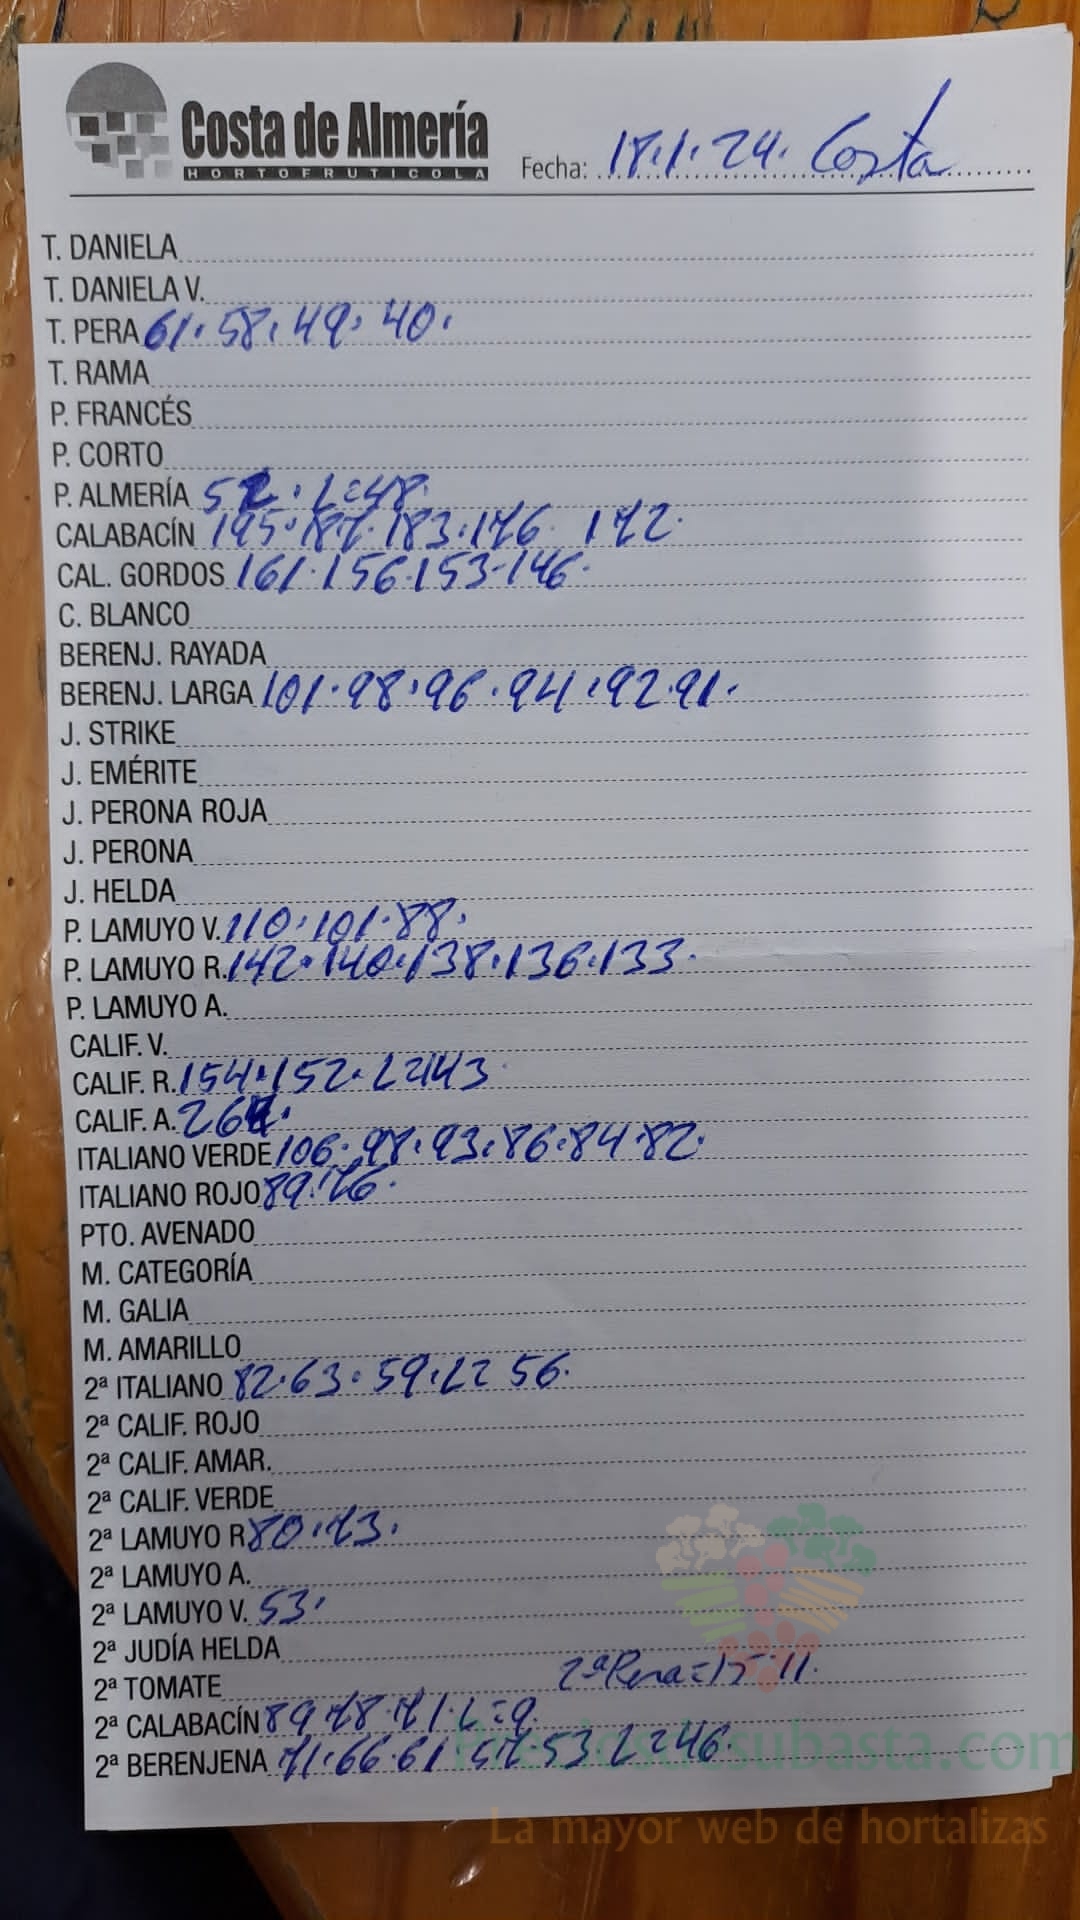 Costa de Almería
HORTOFRUTICOLA
Fecha: 18.1.24. Costa
T. DANIELA
T. DANIELA V.
T. PERA 61. 58. 49. 40.
T. RAMA
P. FRANCÉS
P. CORTO
P. ALMERÍA L=48.
CALABACÍN 195. 187. 183. 176. 172.
CAL. GORDOS 161. 156. 153. 146.
C. BLANCO
BERENJ. RAYADA
BERENJ. LARGA 101. 98. 96. 94. 92. 91.
J. STRIKE
J. EMÉRITE
J. PERONA ROJA
J. PERONA
J. HELDA
P. LAMUYO V. 110. 101. 88.
P. LAMUYO R. 142. 140. 138. 136. 133.
P. LAMUYO A.
CALIF. V.
CALIF. R. 154. 152. L=143
CALIF. A.
ITALIANO VERDE 106. 98. 93. 86. 84. 82.
ITALIANO ROJO 89. 76.
PTO. AVENADO
M. CATEGORÍA
M. GALIA
M. AMARILLO
2ª ITALIANO 82. 63. 59. L= 56.
2ª CALIF. ROJO
2ª CALIF. AMAR.
2ª CALIF. VERDE
2ª LAMUYO R 80. 73.
2ª LAMUYO A.
2ª LAMUYO V. 53.
2ª JUDÍA HELDA
2ª TOMATE 2ª Pera = 15. 11.
2ª CALABACÍN 89 78. 71. L=9.
2ª BERENJENA 71. 66. 61. 57. 53 L=46.
Preciosdesubasta.com
La mayor web de hortalizas